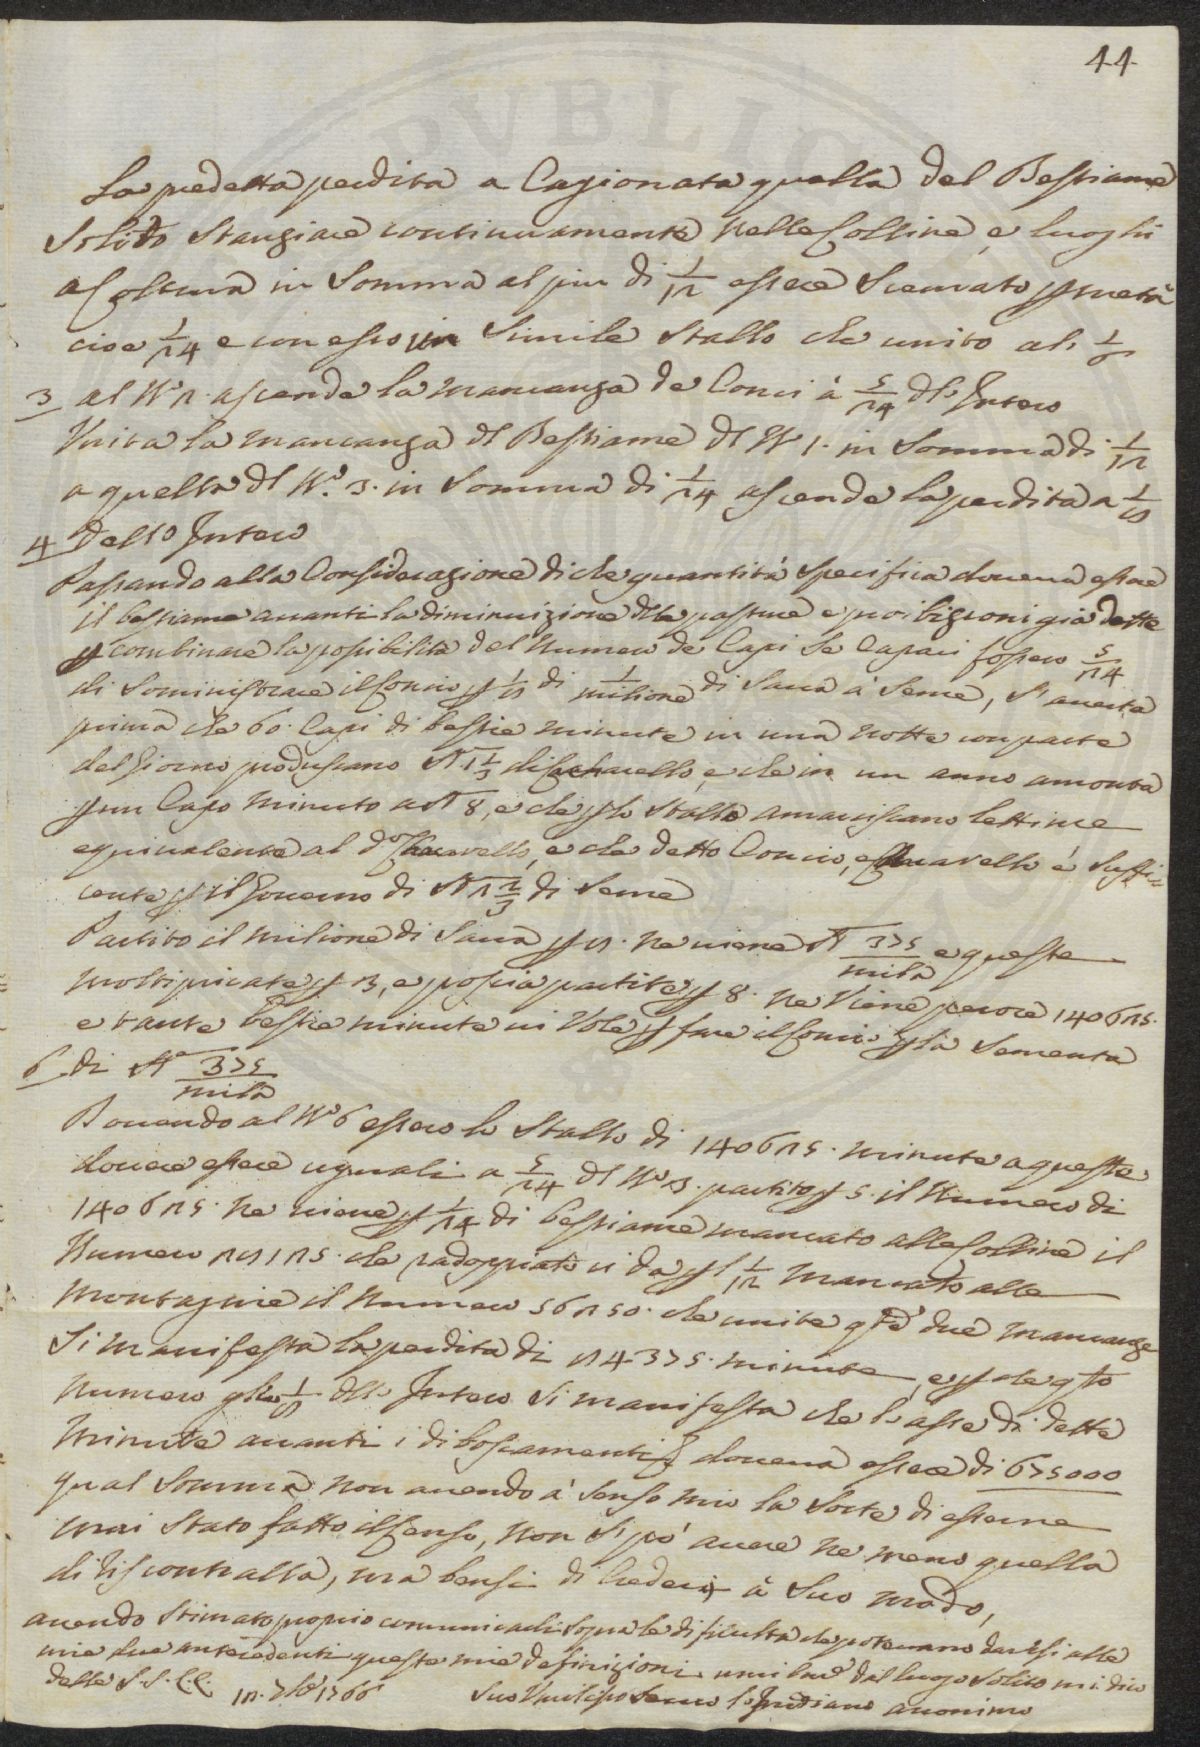 44
PVBLIC
La predetta perdita a Cagionata quella del Bestiame
Solito Stanziare continuamente nelle Colline, e luoghi
a Coltura in Somma al piu di 1/12 essere Scemato p metà
cioe 1/24 e con esso un Simile Stallo che unito al 1/6
3 al N.º 2. ascende la mancanza de Conci à 5/24 dlº Intero
Unita la mancanza dl Bestiame dl Nº 1. in Somma di 1/12
a quella dl Nº. 3. in Somma di 1/24 ascende la perdita a 1/8
4 dello Intero
Passando alla Considerazione di che quantità Specifica doveva essere
il bestiame avanti la diminuizione dlle pasture e proibizioni già dette
p combinare la possibilità del Numero de Capi se Capaci fossero 5/24
di Sominestrare il Concio p 1/8 di 1/milione di Sacca à Seme, S'averta
prima che 60. Capi di bestie minute in una Notte con parte
del Giorno produscano 1 1/3 di e che in un anno amonta
p un Capo minuto a 8, e che p lo Stallo amarciscano lettime
equivalente al dº e che detto Concio, e è Suffi=
cente p il Governo di 2/3 di Seme
Partito il milione di Sacca p 8. ne viene 375/mila e queste
moltiplicate p 3, e poscia partite p 8. ne Viene pecore 140625.
e tante bestie minute vi Vole p fare il Concio p la Sementa
6 di 375/mila
Dovendo al Nº 6 essere lo Stallo di 140625. minute a queste
dovere essere uguali a 5/24 dl Nº 3. partito p 5. il Numero di
140625. ne viene p 1/24 di bestiame mancato alle Colline il
Numero 28125. che radoppiato ci da p l 1/12 mancato alle
Montagnie il Numero 56250. che unite qste due mancanze
Si manifesta la perdita di 84375. minute, e p che qsto
Numero 1/8 dllo Intero Si manifesta che l'asse di dette
Minute avanti i diboscamenti doveva essere di 675000
qual Somma non avendo à Senso mio la Sorte di esserne
mai Stato fatto il Censo, non Si pò avere ne meno quella
di discontralla, ma bensi di Creder à Suo modo,
avendo Stimato proprio comunicarli Sopra le dificultà che potevano darsi alle
mie due antecedenti queste mie definizioni umil dal luogo Solito mi dico
delle S.S. C.C. 12. 7bre 1766 Suo Umilisso Servo lo Indiano anonimo